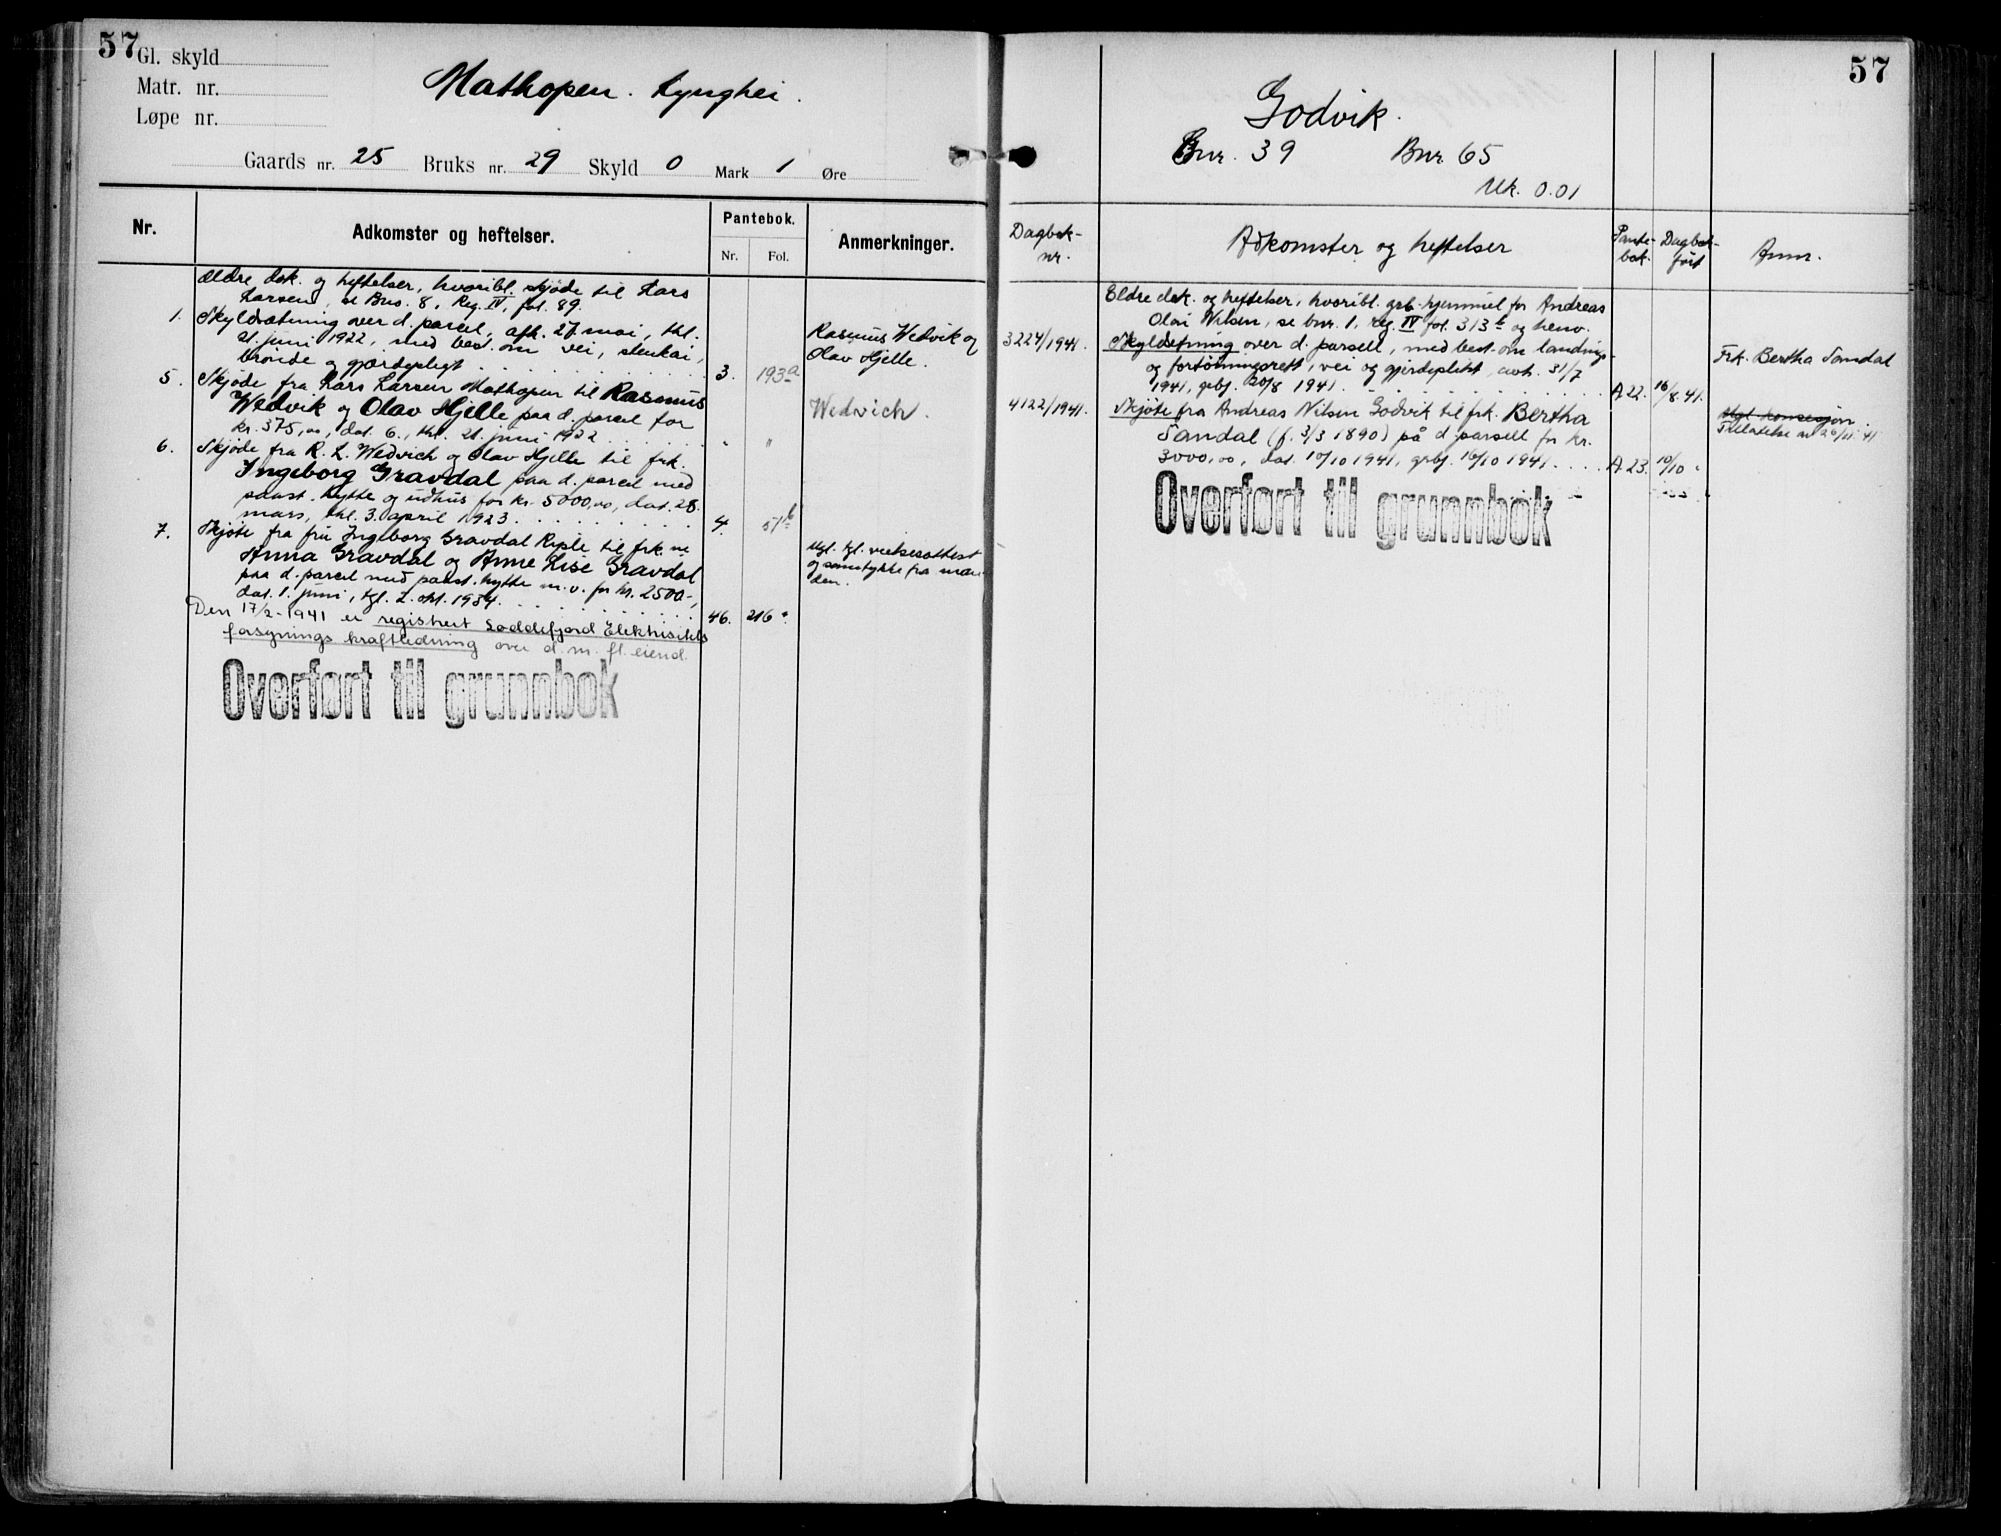 57
Gl. skyld
Matr. nr.
Løpe nr.
Mathopen. Lynghei.
Gaards nr. 25 Bruks nr. 29 Skyld 0 Mark 1 Øre
Nr.
Adkomster og heftelser.
Pantebok.
Nr. Fol.
Anmerkninger.
Ældre dok. og heftelser, hvoribl. skjøde til Lars
Larsen, se Bno. 8, Reg. IV, fol. 89.
1. Skyldsætning over d. parcel, afh. 27 mai, thl.
21. juni 1922, med best. om vei, stenkai,
brønde og gjærdepligt 3. 193a
Rasmus Wedvik og
Olav Hjelle.
5. Skjøde fra Lars Larsen Mathopen til Rasmus
Wedvik og Olav Hjelle paa d. parcel for
kr. 375,00, dat. 6., thl. 21. juni 1922 " "
Wedvich.
6. Skjøde fra R. L. Wedvich og Olav Hjelle til frk.
Ingeborg Gravdal paa d. parcel med
paast. hytte og udhus for kr. 5000,00, dat. 28.
mars, thl. 3. april 1923. 4. 51b
7. Skjøte fra fru Ingeborg Gravdal Riple til frk.ne
Anna Gravdal og Anne Lise Gravdal
paa d. parcel med paast. hytte m.v. for kr. 2500-,
dat. 1. juni, tgl. 2. okt. 1934. 46. 216
Mgl. tgl. vielsesattest
og samtykke fra man-
den.
Den 17/2-1941 er registrert Loddefjord Elektrisitets
forsynings kraftledning over d. m. fl. eiend.
Overført til grunnbok
57
Godvik.
Gnr. 39 Bnr 65
Mk. 0.01
Dagbok-
nr.
Adkomster og heftelser
Pante-
bok.
Dagbok-
ført
Anm.
Eldre dok. og heftelser, hvoribl. grb. hjemmel for Andreas
Olai Nilsen, se bnr. 1, reg. IV fol. 313b og henv.
3224/1941. Skyldsetning over d. parsell, med best. om landings-
og fortøiningsrett, vei og gjerdeplikt, avh. 31/7
1941, grbj. 20/8 1941. A 22. 16/8.41.
Frk. Bertha Sandal
4122/1941. Skjøte fra Andreas Nilsen Godvik til frk. Bertha
Sandal (f. 3/3 1890) på d. parsell for kr.
3000,00, dat. 10/10 1941, grbj. 16/10 1941. A 23. 10/10 "
Mgl. konsesjon.
Tillatelse av 26/11-41
Overført til grunnbok